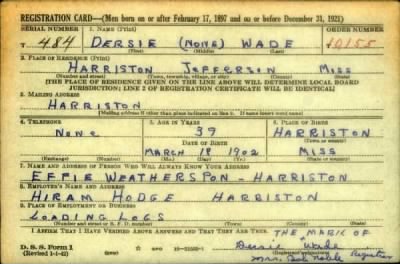 REGISTRATION CARD—(Men born on or after February 17, 1897 and on or before December 31, 1921)
SERIAL NUMBER 1. NAME (Print) ORDER NUMBER
T 484 DERSIE (NONE) WADE 10155
(First) (Middle) (Last)
2. PLACE OF RESIDENCE (Print)
HARRISTON JEFFERSON MISS
(Number and street) (Town, township, village, or city) (County) (State)
[THE PLACE OF RESIDENCE GIVEN ON THE LINE ABOVE WILL DETERMINE LOCAL BOARD
JURISDICTION; LINE 2 OF REGISTRATION CERTIFICATE WILL BE IDENTICAL]
3. MAILING ADDRESS
HARRISTON
[Mailing address if other than place indicated on line 2. If same insert word same]
4. TELEPHONE 5. AGE IN YEARS 6. PLACE OF BIRTH
NONE 39 HARRISTON
DATE OF BIRTH (Town or county)
MARCH 18 1902 MISS
(Exchange) (Number) (Mo.) (Day) (Yr.) (State or country)
7. NAME AND ADDRESS OF PERSON WHO WILL ALWAYS KNOW YOUR ADDRESS
EFFIE WEATHERSPON - HARRISTON
8. EMPLOYER'S NAME AND ADDRESS
HIRAM HODGE HARRISTON
9. PLACE OF EMPLOYMENT OR BUSINESS
LOADING LOGS
(Number and street or R. F. D. number) (Town) (County) (State)
I AFFIRM THAT I HAVE VERIFIED ABOVE ANSWERS AND THAT THEY ARE TRUE.
THE MARK OF
D. S. S. Form 1 Dersie Wade
(Revised 1-1-42) (Registrant's signature)
Mrs. Noble Registrar